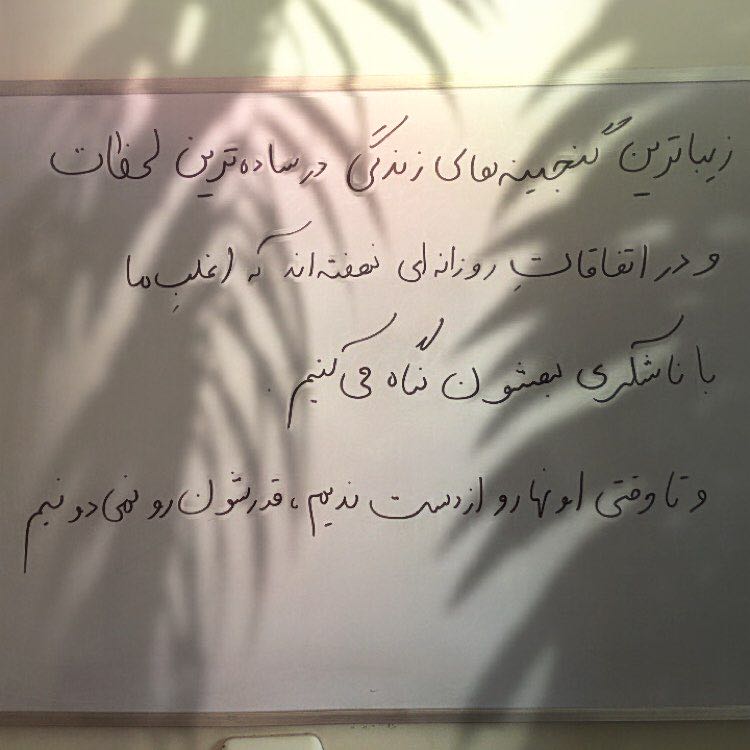 زیباترین گنجینه‌های زندگی در ساده‌ترین لحظات
و در اتفاقاتِ روزانه‌ای نهفته‌اند که اغلبِ ما
با ناشکری بهشون نگاه می‌کنیم.
و تا وقتی اونها رو از دست ندیم، قدرشون رو نمی‌دونیم